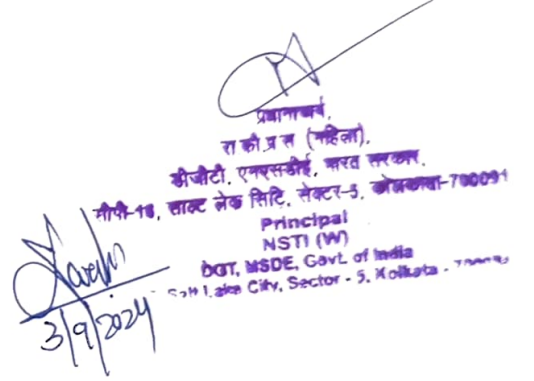 प्रधानाचार्य,
रा कौ प्र स (महिला),
डीजीटी, एमएसडीई, भारत सरकार,
सीपी-16, साल्ट लेक सिटि, सेक्टर-5, कोलकाता-700091
Principal
NSTI (W)
DGT, MSDE, Govt. of India
Salt Lake City, Sector - 5, Kolkata -
3/9/2024